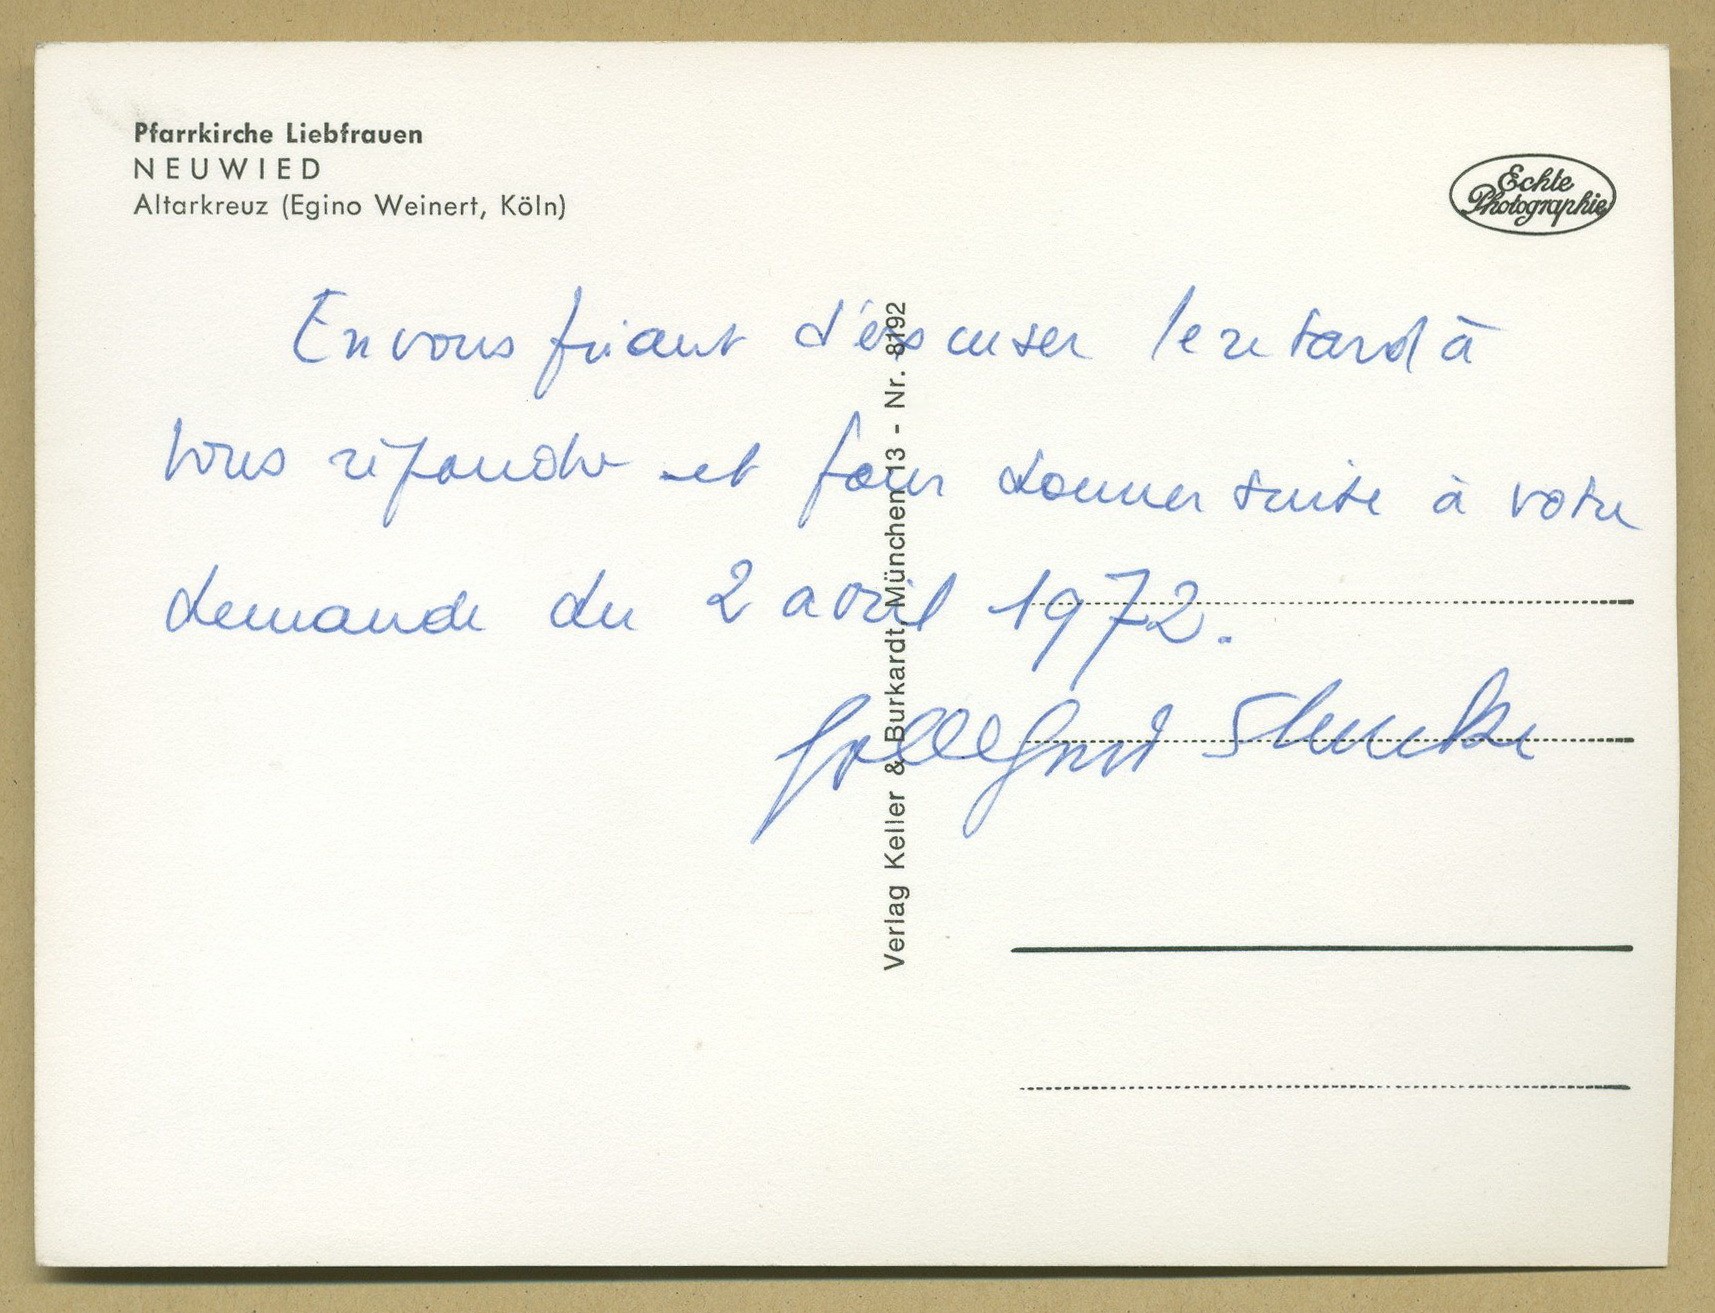 Pfarrkirche Liebfrauen
NEUWIED
Altarkreuz (Egino Weinert, Köln)
Echte
Photographie
En vous priant d'éxcuser le retard à
vous répondre et pour donner suite à votre
demande du 2 avril 1972.
Verlag Keller & Burkardt, München 13 - Nr. 8192